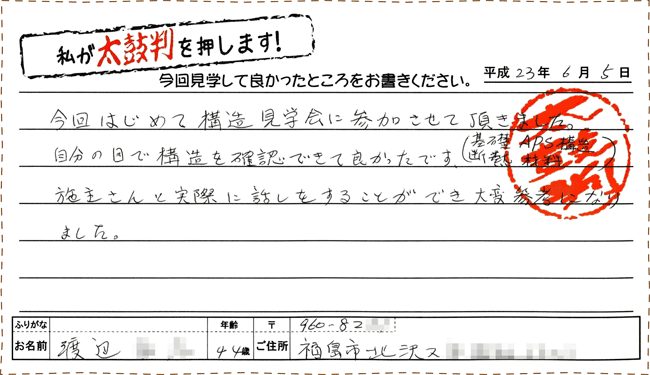 私が太鼓判を押します!
今回見学して良かったところをお書きください。 平成23年6月5日
今回はじめて構造見学会に参加させて頂きました。
自分の目で構造を確認できて良かったです。(基礎 APS構造 断熱材料)
施主さんと実際に話しをすることができ大変参考になり
ました。
ふりがな 年齢 〒 960-82
お名前 渡辺 44歳 ご住所 福島市北沢又